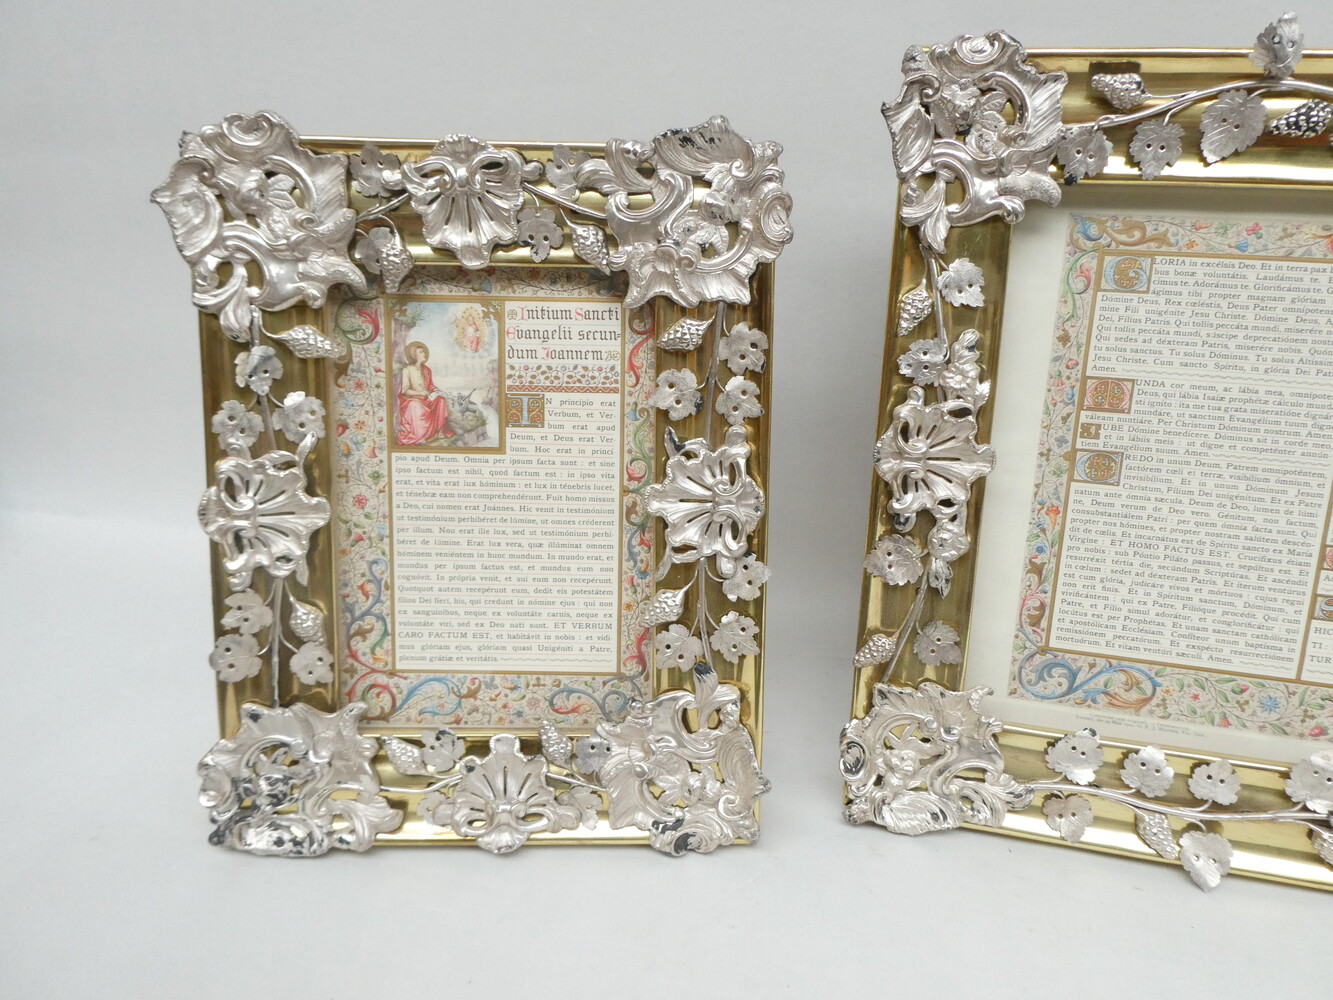 Initium Sancti
Evangelii secun-
dum Joannem
IN principio erat
Verbum, et Ver-
bum erat apud
Deum, et Deus erat Ver-
bum. Hoc erat in princi
pio apud Deum. Omnia per ipsum facta sunt : et sine
ipso factum est nihil, quod factum est : in ipso vita
erat, et vita erat lux hóminum : et lux in ténebris lucet,
et ténebræ eam non comprehendérunt. Fuit homo missus
a Deo, cui nomen erat Joánnes. Hic venit in testimónium
ut testimónium perhibéret de lúmine, ut omnes créderent
per illum. Non erat ille lux, sed ut testimónium perhi-
béret de lúmine. Erat lux vera, quæ illúminat omnem
hóminem veniéntem in hunc mundum. In mundo erat, et
mundus per ipsum factus est, et mundus eum non
cognóvit. In própria venit, et sui eum non recepérunt.
Quotquot autem recepérunt eum, dedit eis potestátem
fílios Dei fíeri, his, qui credunt in nómine ejus : qui non
ex sanguínibus, neque ex voluntáte carnis, neque ex
voluntáte viri, sed ex Deo nati sunt. ET VERBUM
CARO FACTUM EST, et habitávit in nobis : et vídi-
mus glóriam ejus, glóriam quasi Unigéniti a Patre,
plenum grátiæ et veritátis.
GLORIA in excélsis Deo. Et in terra pax
bus bonæ voluntátis. Laudámus te.
cimus te. Adorámus te. Glorificámus te.
ágimus tibi propter magnam glóriam
Dómine Deus, Rex cœléstis, Deus Pater omnípoten
mine Fili unigénite Jesu Christe. Dómine Deus, A
Dei, Fílius Patris. Qui tollis peccáta mundi, miserére n
Qui tollis peccáta mundi, súscipe deprecatiónem nost
Qui sedes ad déxteram Patris, miserére nobis. Quón
tu solus sanctus. Tu solus Dóminus. Tu solus Altíssim
Jesu Christe. Cum sancto Spíritu, in glória Dei Pat
Amen.
MUNDA cor meum, ac lábia mea, omnípote
Deus, qui lábia Isaíæ prophétæ cálculo mund
sti igníto : ita me tua grata miseratióne digná
mundáre, ut sanctum Evangélium tuum dign
váleam nuntiáre. Per Christum Dóminum nostrum. Amen
JUBE dómine benedícere. Dóminus sit in corde
et in lábiis meis : ut digne et competénter annún
tiem Evangélium suum. Amen.
CREDO in unum Deum, Patrem omnipoténtem,
factórem cœli et terræ, visibílium ómnium, et
invisibílium. Et in unum Dóminum Jesum
Christum, Fílium Dei unigénitum. Et ex Patre
natum ante ómnia sæcula. Deum de Deo, lumen de lúmi
ne, Deum verum de Deo vero. Génitum, non factum,
consubstantiálem Patri : per quem ómnia facta sunt. Qui
propter nos hómines, et propter nostram salútem descén-
dit de cœlis. Et incarnátus est de Spíritu sancto ex María
Vírgine : ET HOMO FACTUS EST. Crucifíxus étiam
pro nobis : sub Póntio Piláto passus, et sepúltus est. Et
resurréxit tértia die, secúndum Scriptúras. Et ascéndit
in cœlum : sedet ad déxteram Patris. Et íterum ventúrus
est cum glória, judicáre vivos et mórtuos : cujus regni
non erit finis. Et in Spíritum sanctum, Dóminum, et
vivificántem : qui ex Patre, Filióque procédit. Qui cum
Patre, et Fílio simul adorátur, et conglorificátur : qui
locútus est per Prophétas. Et unam sanctam cathólicam
et apostólicam Ecclésiam. Confíteor unum baptísma in
remissiónem peccatórum. Et exspécto resurrectiónem
mortuórum. Et vitam ventúri sæculi. Amen.
HIC
TI :
TUR